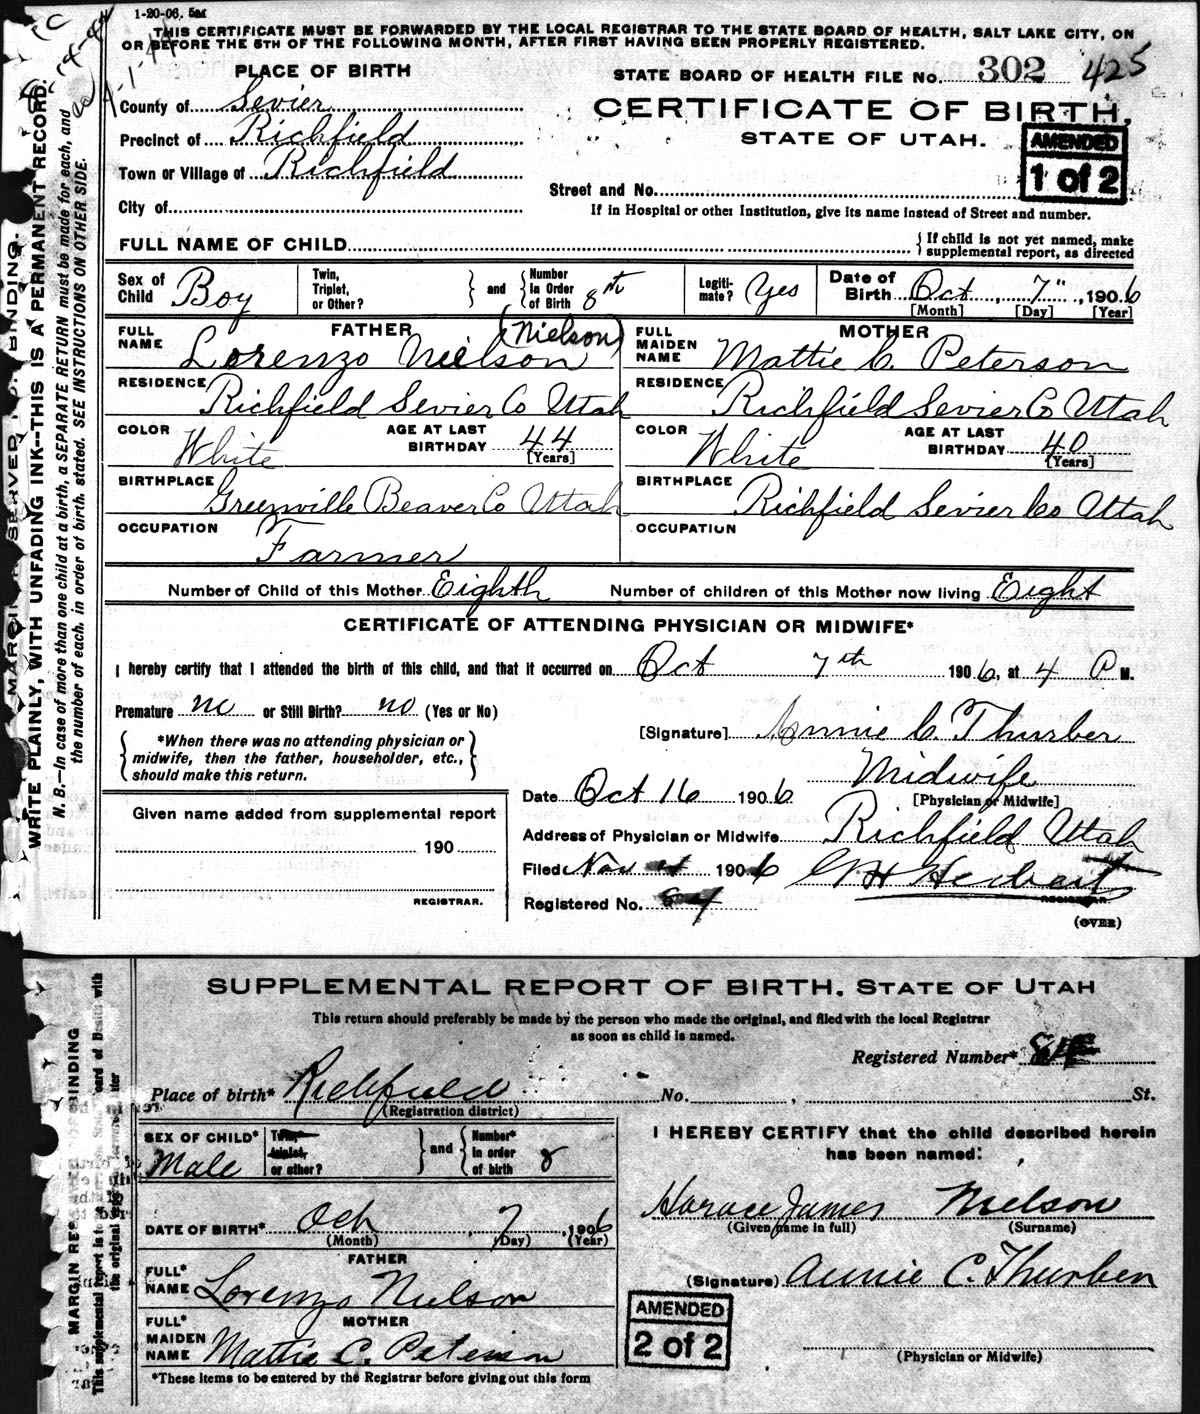 1-20-06, 5M
THIS CERTIFICATE MUST BE FORWARDED BY THE LOCAL REGISTRAR TO THE STATE BOARD OF HEALTH, SALT LAKE CITY, ON
OR BEFORE THE 5TH OF THE FOLLOWING MONTH, AFTER FIRST HAVING BEEN PROPERLY REGISTERED.
PLACE OF BIRTH
STATE BOARD OF HEALTH FILE No. 302 425
County of Sevier
CERTIFICATE OF BIRTH,
Precinct of Richfield
STATE OF UTAH.
AMENDED
1 of 2
Town or Village of Richfield
Street and No.
City of
If in Hospital or other Institution, give its name instead of Street and number.
FULL NAME OF CHILD
{If child is not yet named, make
supplemental report, as directed
Sex of Child Boy
Twin, Triplet, or Other?
} and {
Number In Order of Birth 8th
Legiti-mate? Yes
Date of Birth Oct, 7", 1906
[Month] [Day] [Year]
FATHER
FULL NAME Lorenzo Nielson (Nielson)
MOTHER
FULL MAIDEN NAME Mattie C. Peterson
RESIDENCE Richfield Sevier Co Utah
RESIDENCE Richfield Sevier Co Utah
COLOR White
AGE AT LAST BIRTHDAY 44
[Years]
COLOR White
AGE AT LAST BIRTHDAY 40
[Years]
BIRTHPLACE Greenville Beaver Co Utah
BIRTHPLACE Richfield Sevier Co Utah
OCCUPATION Farmer
OCCUPATION
Number of Child of this Mother Eighth
Number of children of this Mother now living Eight
CERTIFICATE OF ATTENDING PHYSICIAN OR MIDWIFE*
I hereby certify that I attended the birth of this child, and that it occurred on Oct 7th 1906, at 4 P M.
Premature no or Still Birth? no (Yes or No)
[Signature] Annie C. Thurber
{*When there was no attending physician or
midwife, then the father, householder, etc.,
should make this return.}
Midwife
[Physician or Midwife]
Date Oct 16 1906
Given name added from supplemental report
190
REGISTRAR.
Address of Physician or Midwife Richfield Utah
Filed Nov 4 1906
Registered No. 84
REGISTRAR.
(OVER)
MARGIN RESERVED FOR BINDING.
WRITE PLAINLY, WITH UNFADING INK--THIS IS A PERMANENT RECORD.
N. B.—In case of more than one child at a birth, a SEPARATE RETURN must be made for each, and
the number of each, in order of birth, stated. SEE INSTRUCTIONS ON OTHER SIDE.
SUPPLEMENTAL REPORT OF BIRTH. STATE OF UTAH
This return should preferably be made by the person who made the original, and filed with the local Registrar
as soon as child is named.
Registered Number* 84
Place of birth* Richfield No. , St.
(Registration district)
SEX OF CHILD* Male
Twin, triplet, or other?
} and {
Number* in order of birth 8
I HEREBY CERTIFY that the child described herein
has been named:
DATE OF BIRTH* Oct 7 1906
(Month) (Day) (Year)
Horace James Nielson
(Given name in full) (Surname)
FATHER
FULL* NAME Lorenzo Nielson
(Signature) Annie C. Thurber
MOTHER
FULL* MAIDEN NAME Mattie C. Peterson
AMENDED
2 of 2
(Physician or Midwife)
*These items to be entered by the Registrar before giving out this form
MARGIN RESERVED FOR BINDING